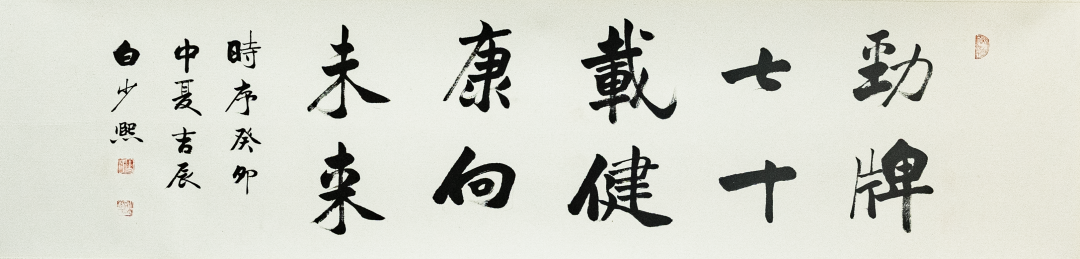 勁牌
七十
載健
康向
未来
時序癸卯
中夏吉辰
白少熙